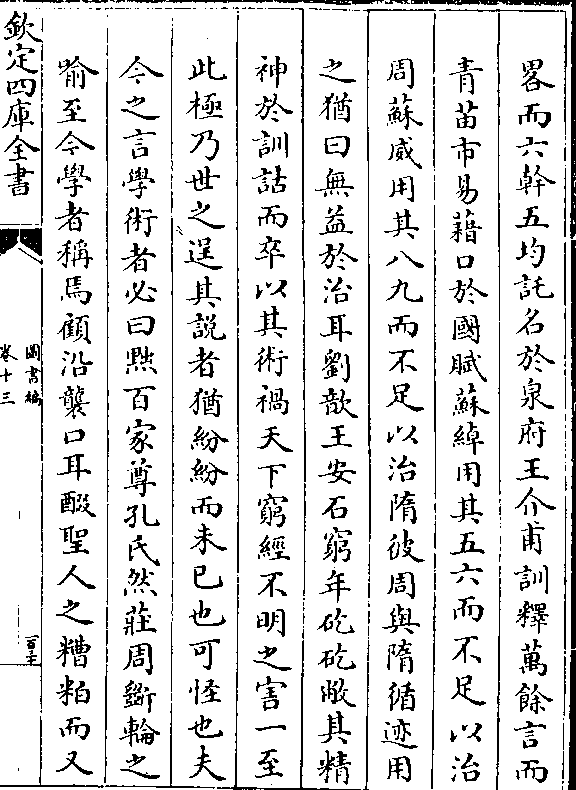 畧而六幹五均託名於泉府王介甫訓釋萬餘言而
青苗市易藉口於國賦蘇綽用其五六而不足以治
周蘇威用其八九而不足以治隋彼周與隋循迹用
之猶曰無益於治耳劉歆王安石窮年矻矻敝其精
神於訓詁而卒以其術禍天下窮經不明之害一至
此極乃世之逞其説者猶紛紛而未已也可怪也夫
今之言學術者必曰㸃百家尊孔氏然莊周斲輪之
喻至今學者稱焉顧沿襲口耳醊聖人之糟粕而又
欽定四庫全書
圖書編
卷十三